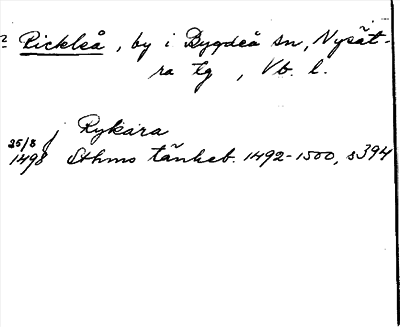 ? Rickleå, by i Bygdeå sn, Nysät-
ra tg, Vb. l.
j Rykara
25/8
1498 Sthms tänkeb. 1492-1500, s394